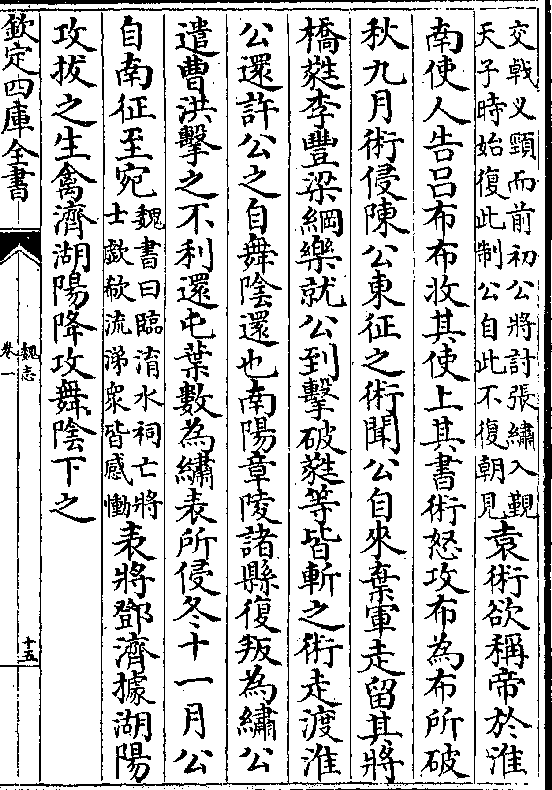 交戟叉頸而前初公將討張繡入覲
天子時始復此制公自此不復朝見
袁術欲稱帝於淮
南使人告吕布布收其使上其書術怒攻布為布所破
秋九月術侵陳公東征之術聞公自來棄軍走留其將
橋蕤李豐梁綱樂就公到擊破蕤等皆斬之術走渡淮
公還許公之自舞隂還也南陽章陵諸縣復叛為繡公
遣曹洪擊之不利還屯葉數為繡表所侵冬十一月公
自南征至宛
魏書曰臨淯水祠亡將
士歔欷流涕衆皆感慟
表將鄧濟據湖陽
攻拔之生禽濟湖陽降攻舞隂下之
欽定四庫全書
魏志
卷一
十五